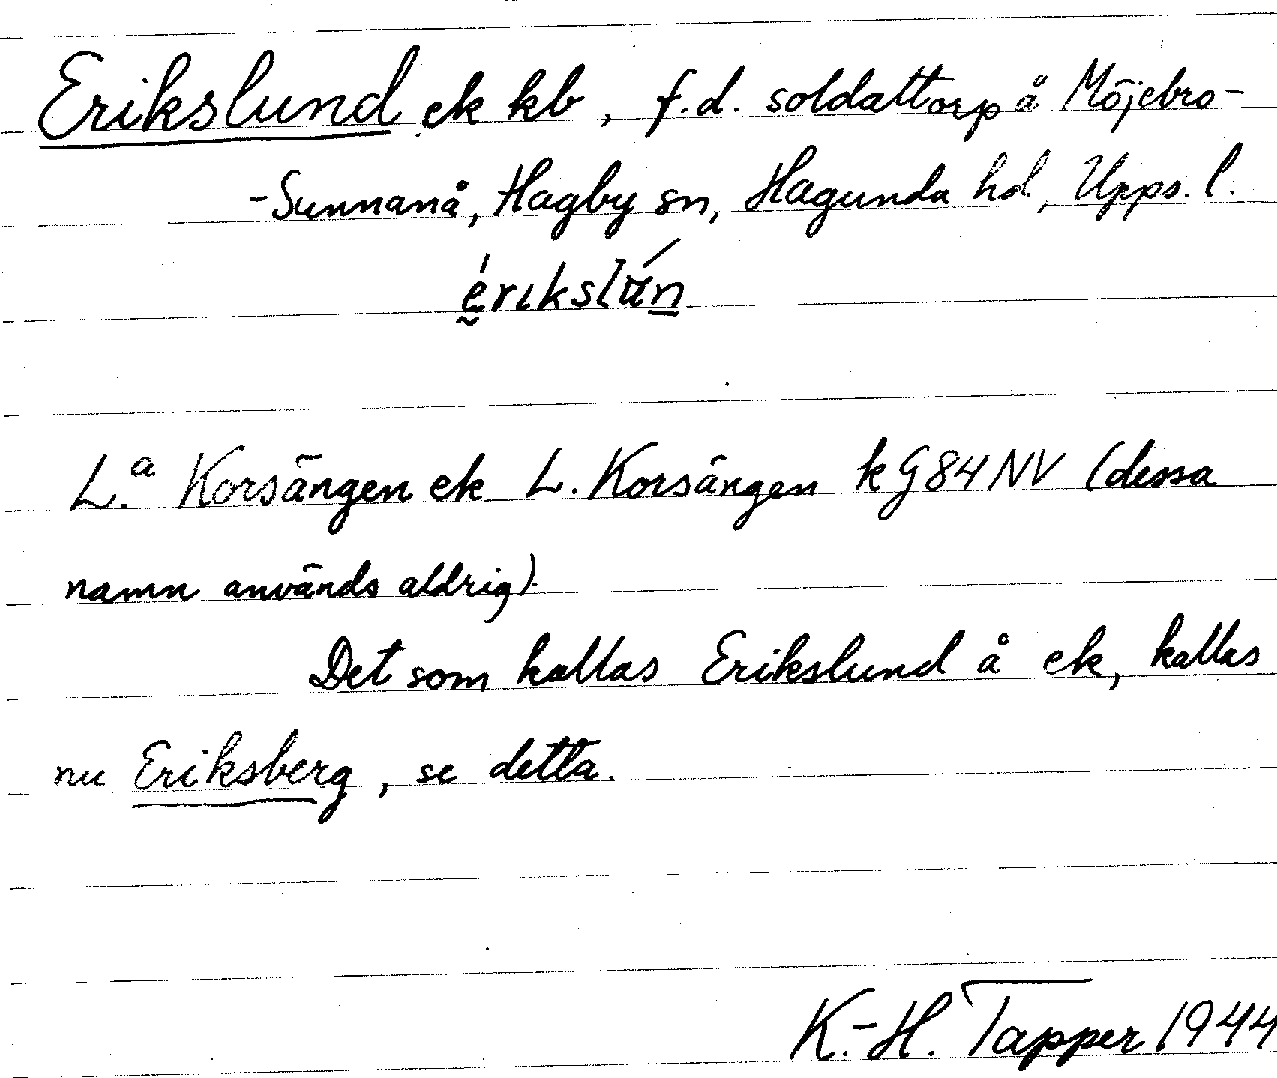 Erikslund ek kb, f.d. soldattorp å Möjebro-
-Sunnanå, Hagby sn, Hagunda hd, Upps. l.
L.a Korsängen ek L. Korsängen k G84NV (dessa
namn används aldrig).
Det som kallas Erikslund å ek, kallas
nu Eriksberg, se detta.
K.-H. Tapper 1944